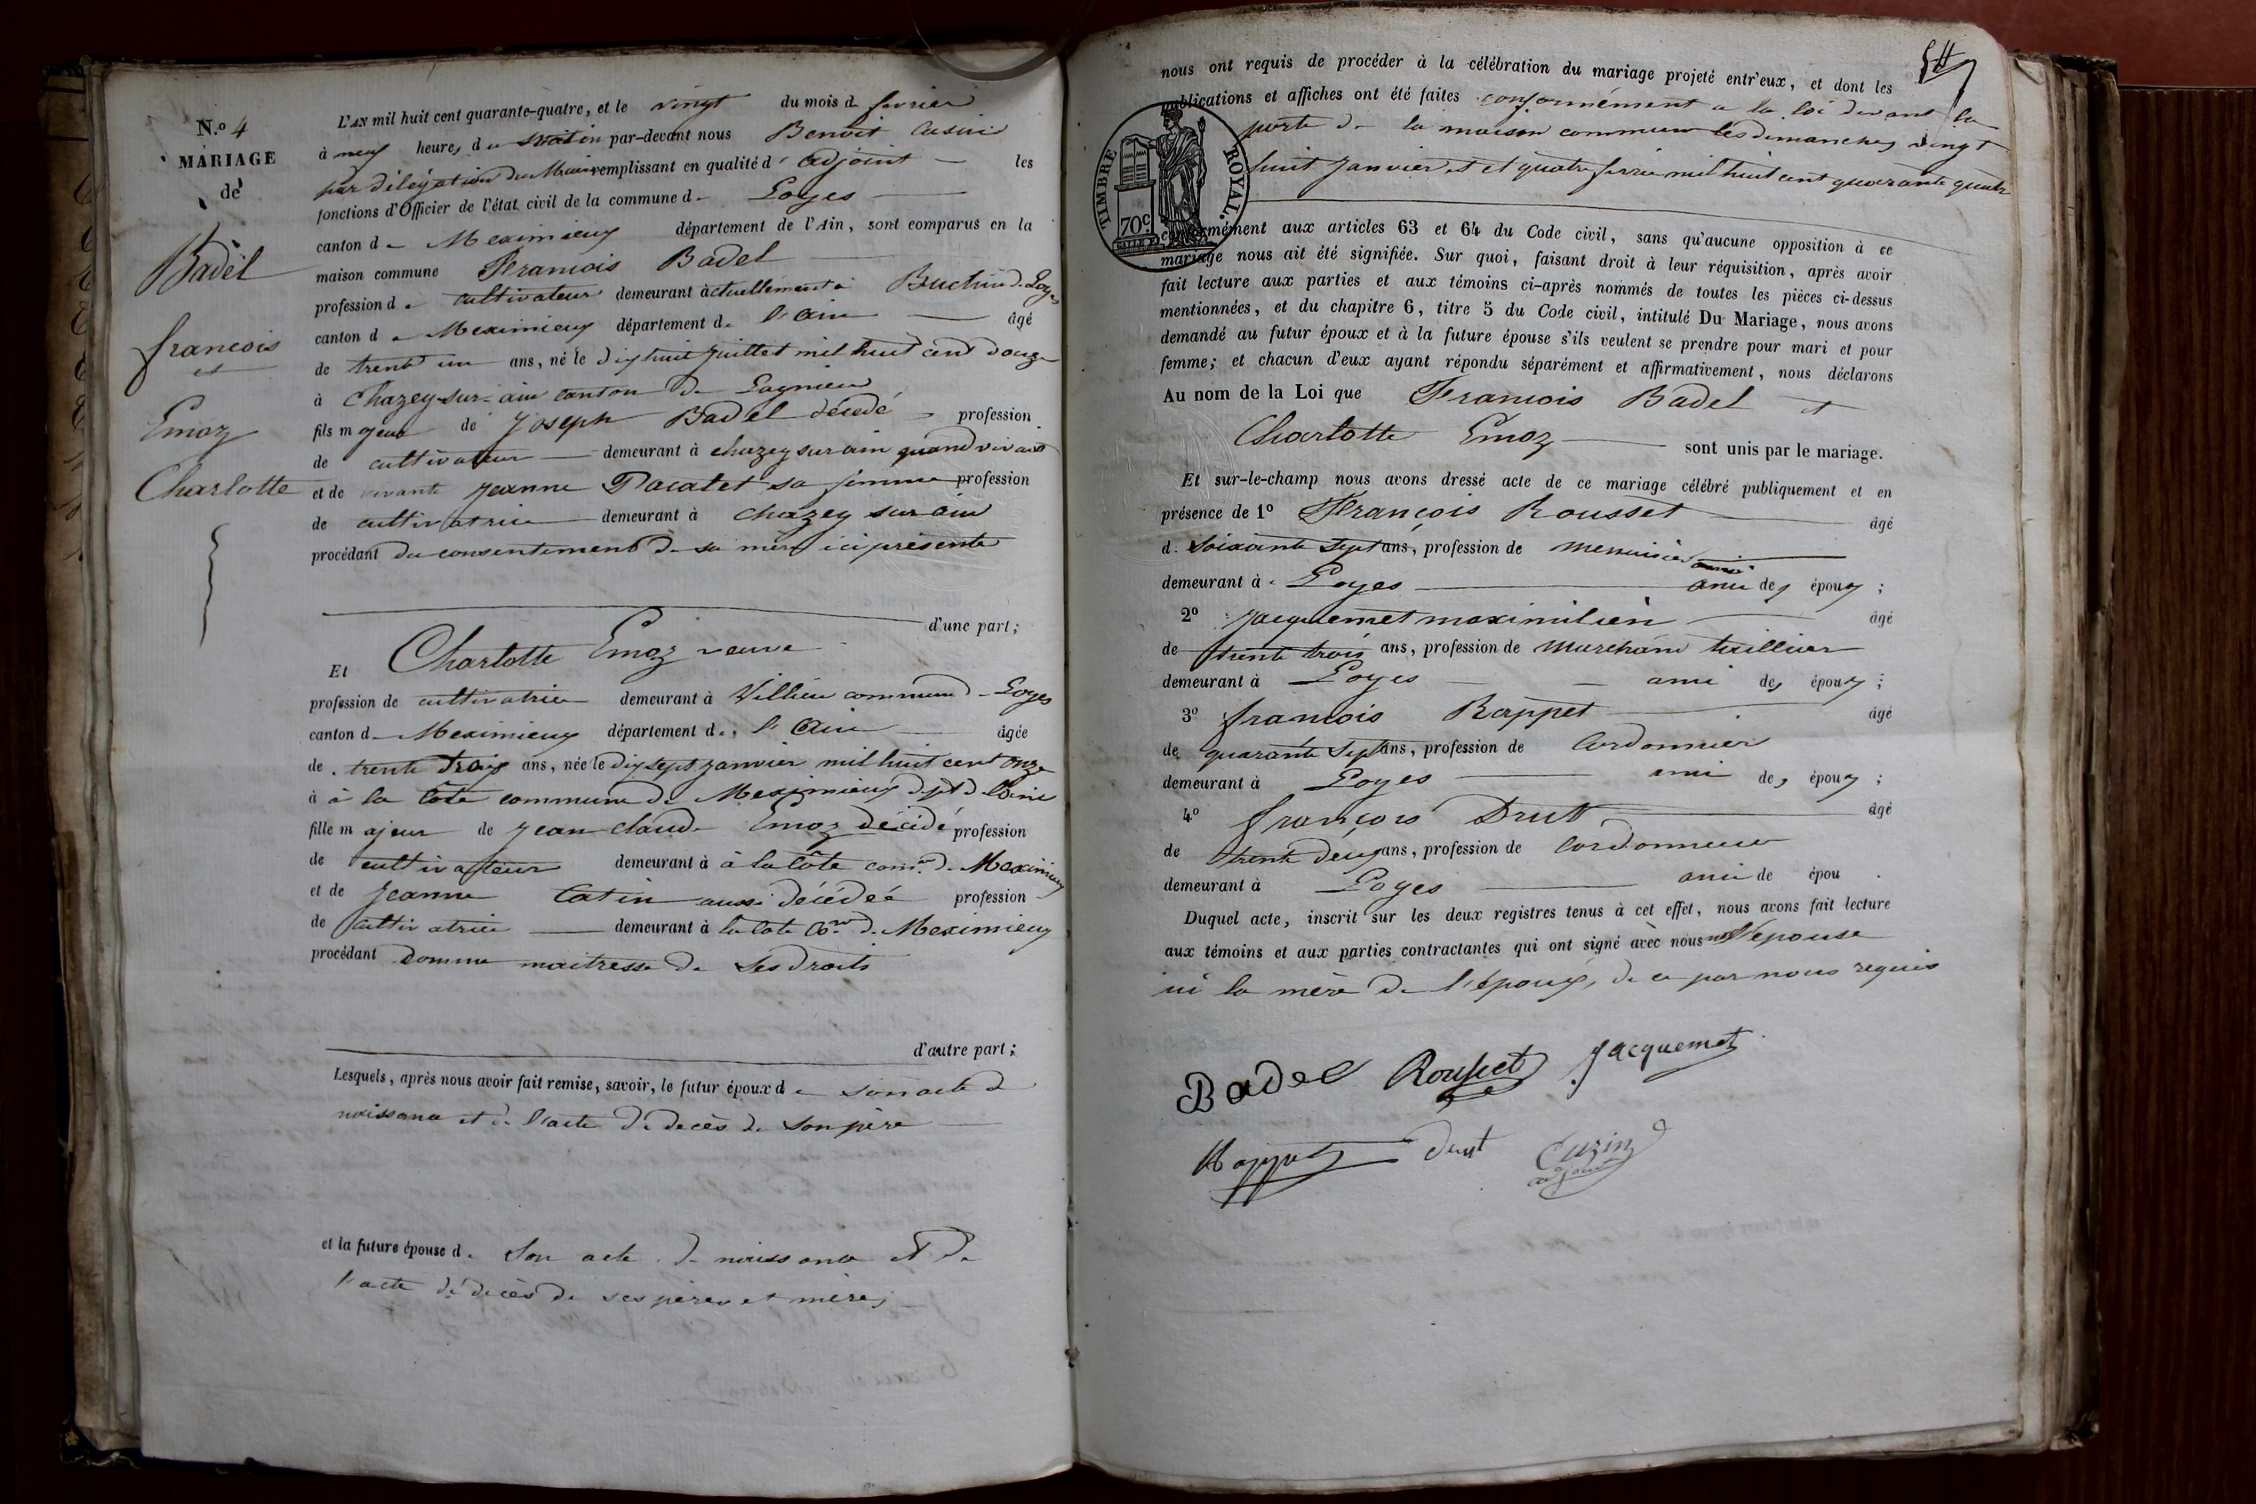 N.º 4
MARIAGE
de
Badel
françois
et
Emoz
Charlotte
L'AN mil huit cent quarante-quatre, et le vingt du mois de fevrier
à neuf heures du matin par-devant nous Benoit Cusin
par délégation du Maire remplissant en qualité d'adjoint les
fonctions d'Officier de l'état civil de la commune de Loyes
canton de Meximieux département de l'Ain, sont comparus en la
maison commune François Badel
profession de cultivateur demeurant actuellement à Buchin de Loyes
canton de Meximieux département de l'ain âgé
de trente un ans, né le dix huit juillet mil huit cent douze
à Chazey-sur-ain canton de Lagnieu
fils majeur de Joseph Badel décédé profession
de cultivateur demeurant à chazey sur ain quand vivait
et de vivante jeanne Pacalet sa femme profession
de cultivatrice demeurant à chazey sur ain
procédant du consentement de sa mère ici présente
d'une part;
Et Charlotte Emoz veuve
profession de cultivatrice demeurant à Villieu commune de Loyes
canton de Meximieux département de l'Ain âgée
de trente trois ans, née le dix sept janvier mil huit cent onze
à à la côte commune de Meximieux dpt de l'ain
fille majeur de jean claude Emoz décédé profession
de cultivateur demeurant à à la côte com.ne de Meximieux
et de jeanne Catin aussi décédée profession
de cultivatrice demeurant à la cote Com.ne de Meximieux
procédant comme maitresse de ses droits
d'autre part;
Lesquels, après nous avoir fait remise, savoir, le futur époux de son acte de
naissance et de l'acte de decès de son père
et la future épouse de son acte de naissance et de
l'acte de décès de ses pères et mères
nous ont requis de procéder à la célébration du mariage projeté entr'eux, et dont les
publications et affiches ont été faites conformément a la loi devant la
porte de la maison commune les dimanches vingt
huit janvier et et quatre fevrier mil huit cent quarante quatre
TIMBRE ROYAL.
70c
conformément aux articles 63 et 64 du Code civil, sans qu'aucune opposition à ce
mariage nous ait été signifiée. Sur quoi, faisant droit à leur réquisition, après avoir
fait lecture aux parties et aux témoins ci-après nommés de toutes les pièces ci-dessus
mentionnées, et du chapitre 6, titre 5 du Code civil, intitulé Du Mariage, nous avons
demandé au futur époux et à la future épouse s'ils veulent se prendre pour mari et pour
femme; et chacun d'eux ayant répondu séparément et affirmativement, nous déclarons
Au nom de la Loi que François Badel et
Charlotte Emoz sont unis par le mariage.
Et sur-le-champ nous avons dressé acte de ce mariage célébré publiquement et en
présence de 1º François Rousset âgé
d. soixante sept ans, profession de menuisier
demeurant à Loyes ami des époux;
2º jacquemet maximilien âgé
de trente trois ans, profession de marchand tuillier
demeurant à Loyes ami des époux;
3º françois Rappet âgé
de quarante sept ans, profession de Cordonnier
demeurant à Loyes ami des époux;
4º françois Drut âgé
de trente deux ans, profession de Cordonnier
demeurant à Loyes ami de épou .
Duquel acte, inscrit sur les deux registres tenus à cet effet, nous avons fait lecture
aux témoins et aux parties contractantes qui ont signé avec nous non l'épouse
ni la mère de l'époux, de ce par nous requis
Badel Rousset Jacquemet
Rappet drut Cuzin
adjoint